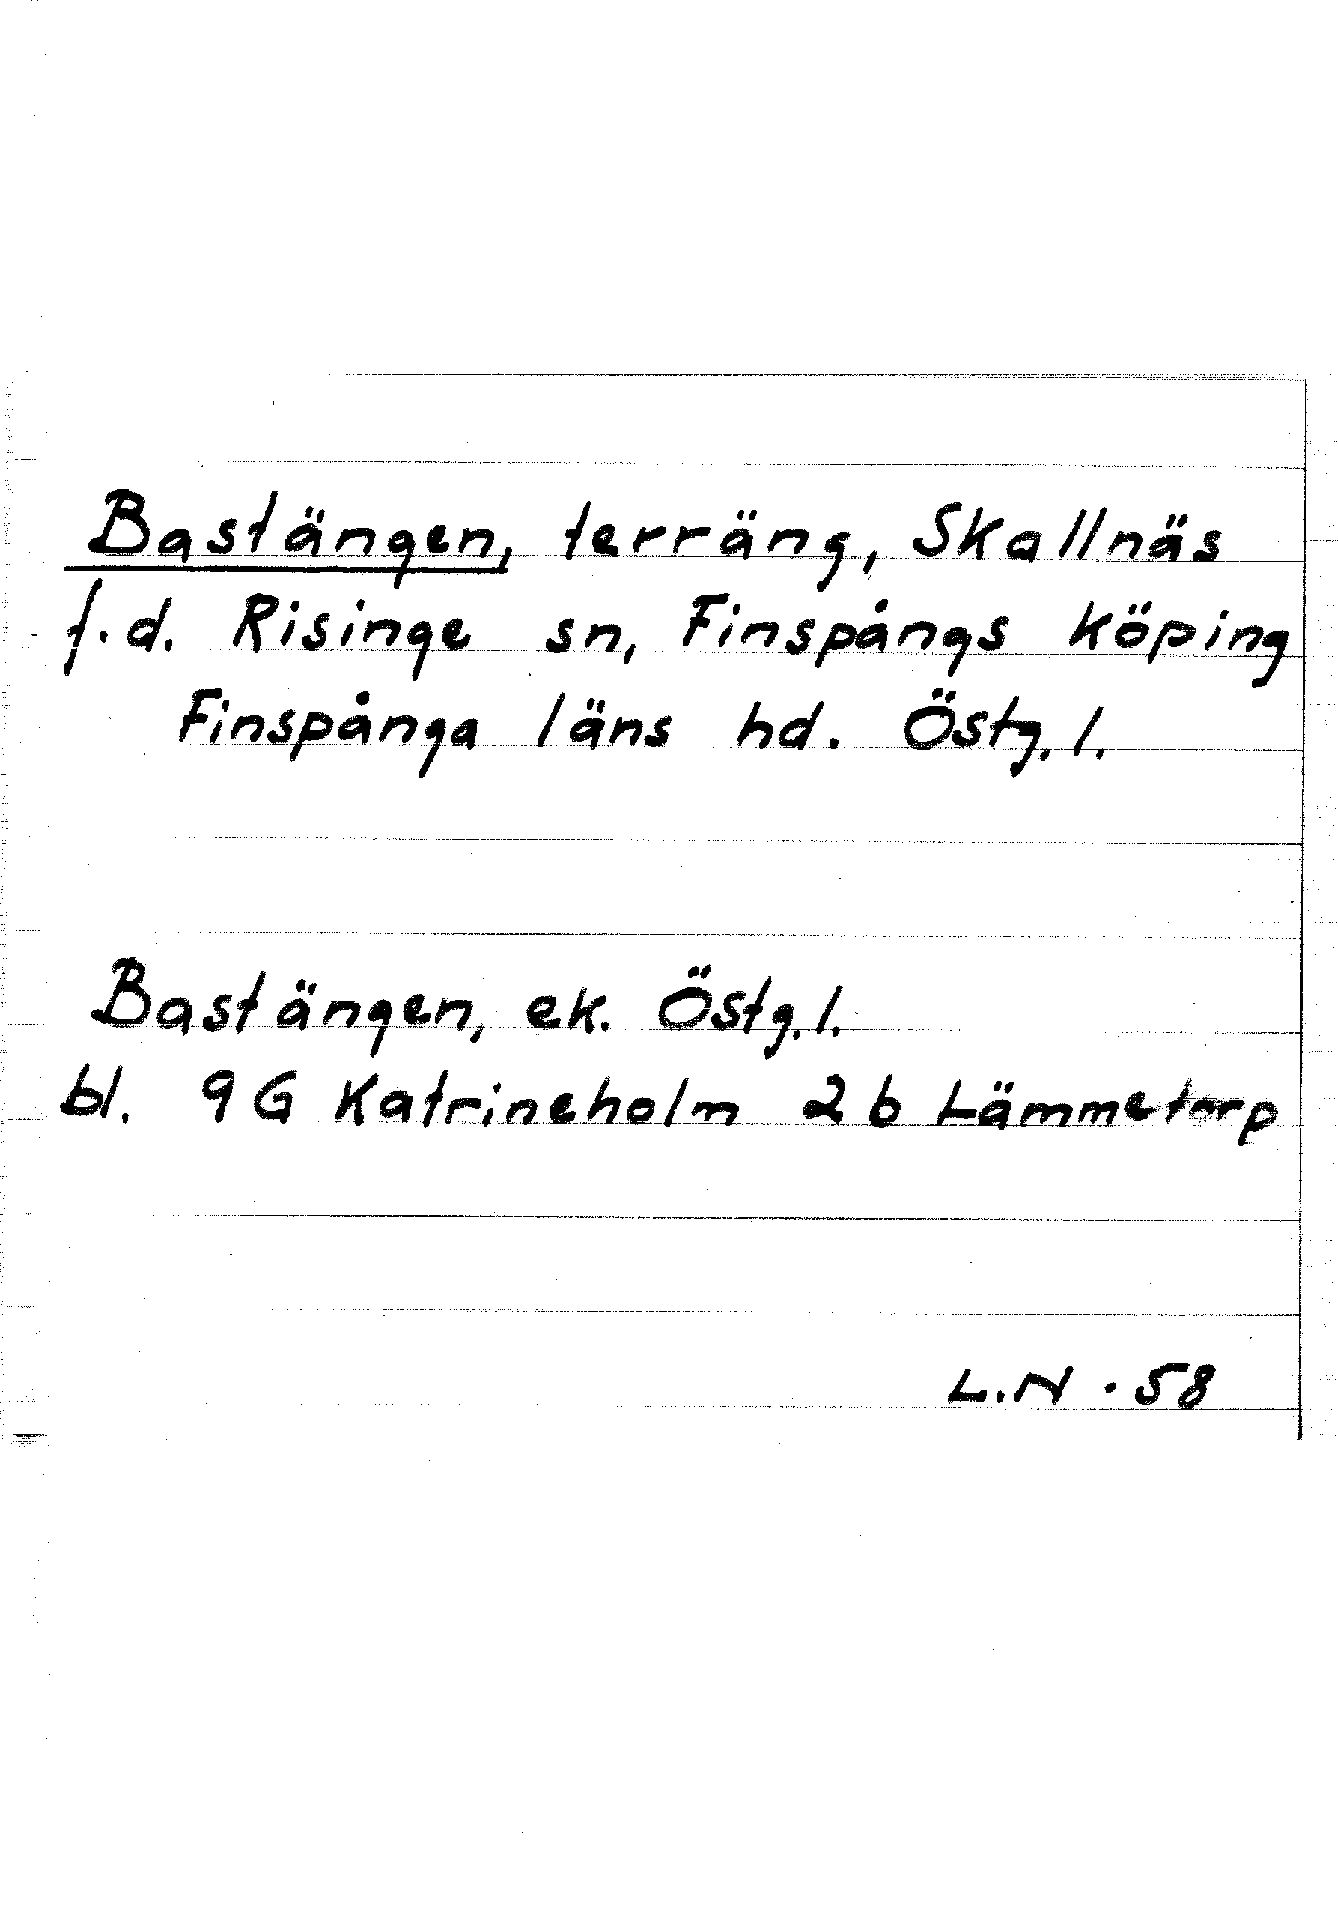 Bastängen, terräng, Skallnäs
f.d. Risinge sn, Finspångs köping
Finspånga läns hd. Östg. l.
Bastängen, ek. Östg. l.
bl. 9 G Katrineholm 2 b Lämmetorp
L.N. 58